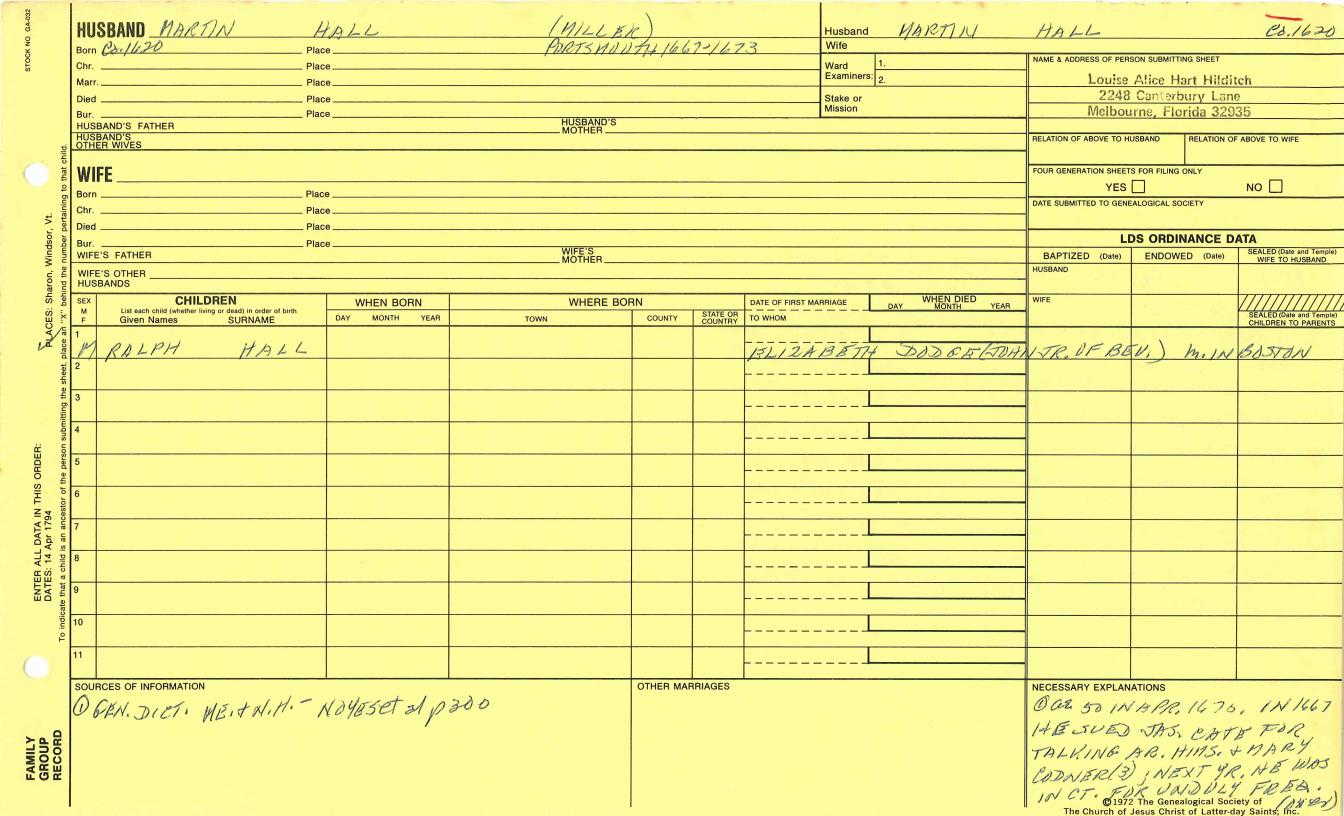 STOCK NO. GA-032
HUSBAND MARTIN HALL (MILLER)
Born Ca.1620 Place PORTSMOUTH 1667-1673
Chr. Place
Marr. Place
Died Place
Bur. Place
HUSBAND'S FATHER HUSBAND'S MOTHER
HUSBAND'S OTHER WIVES
Husband MARTIN HALL Ca.1620
Wife
Ward Examiners: 1.
2.
Stake or Mission
NAME & ADDRESS OF PERSON SUBMITTING SHEET
Louise Alice Hart Hilditch
2248 Canterbury Lane
Melbourne, Florida 32935
RELATION OF ABOVE TO HUSBAND RELATION OF ABOVE TO WIFE
FOUR GENERATION SHEETS FOR FILING ONLY
YES NO
DATE SUBMITTED TO GENEALOGICAL SOCIETY
WIFE
Born Place
Chr. Place
Died Place
Bur. Place
WIFE'S FATHER WIFE'S MOTHER
WIFE'S OTHER HUSBANDS
LDS ORDINANCE DATA
BAPTIZED (Date) ENDOWED (Date) SEALED (Date and Temple) WIFE TO HUSBAND
HUSBAND
WIFE
SEALED (Date and Temple) CHILDREN TO PARENTS
SEX M F
CHILDREN
List each child (whether living or dead) in order of birth
Given Names SURNAME
WHEN BORN
DAY MONTH YEAR
WHERE BORN
TOWN COUNTY STATE OR COUNTRY
DATE OF FIRST MARRIAGE
TO WHOM
WHEN DIED
DAY MONTH YEAR
1
M RALPH HALL ELIZABETH DODGE (JOHN JR. OF BEV.) m. IN BOSTON
2
3
4
5
6
7
8
9
10
11
SOURCES OF INFORMATION
① GEN. DICT. ME. & N.H. - NOYES et al p300
OTHER MARRIAGES
NECESSARY EXPLANATIONS
① ae 50 IN APR. 1670. IN 1667
HE SUED JAS. CATE FOR
TALKING AB. HIMS. & MARY
CODNER(3); NEXT YR. HE WAS
IN CT. FOR UNDULY FREQ.
(over)
©1972 The Genealogical Society of
The Church of Jesus Christ of Latter-day Saints, Inc.
PLACES: Sharon, Windsor, Vt.
ENTER ALL DATA IN THIS ORDER:
DATES: 14 Apr 1794
To indicate that a child is an ancestor of the person submitting the sheet, place an "X" behind the number pertaining to that child.
FAMILY
GROUP
RECORD